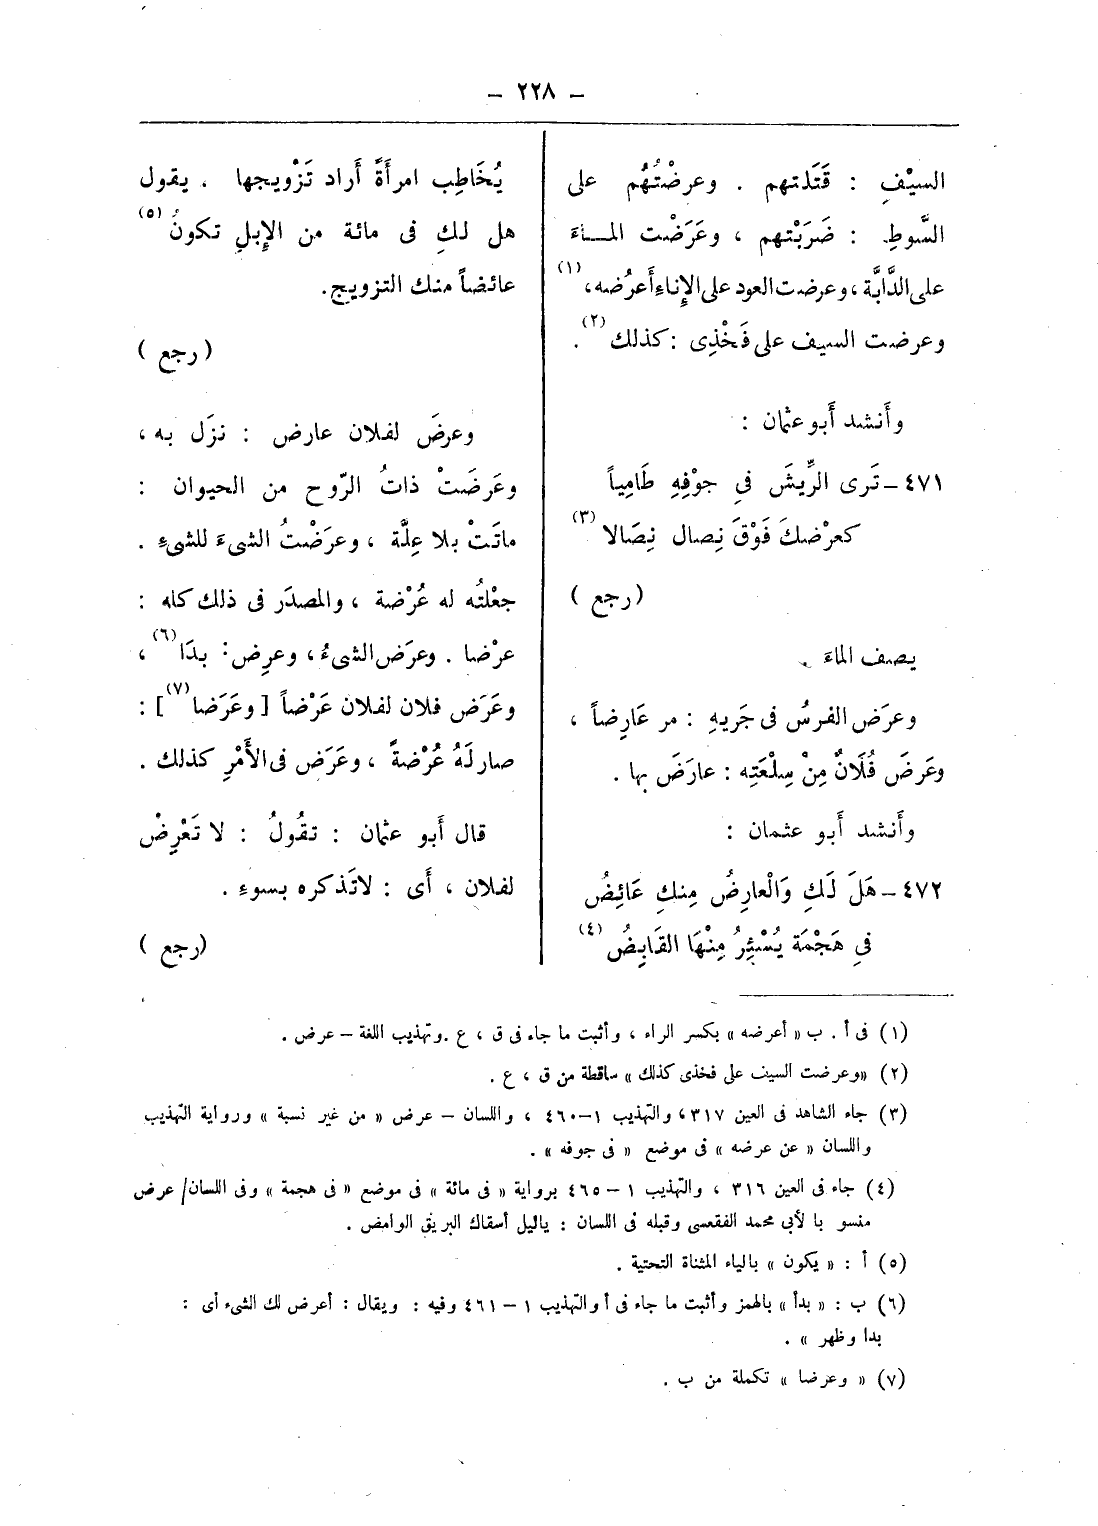 – ٢٢٨ –
السيْفِ : قَتَلتهم . وعرضْتُهُم على
السَّوطِ : ضَرَبْتهم ، وعَرَضْت المــاءَ
على الدَّابَّة ، وعرضت العود على الإِناءِ أَعرُضه ، (١)
وعرضت السيف على فَخْذِى : كذلك (٢) .
وأَنشد أَبو عثمان :
٤٧١ – تَرى الرِّيشَ فىِ جوْفِهِ طَامِياً
كعرْضكَ فَوْقَ نِصال نِصَالا (٣)
( رجع )
يصف الماءَ .
وعرَض الفرسُ فى جَريهِ : مر عَارِضاً ،
وعَرضَ فُلَانٌ مِنْ سِلْعَتِه : عارَضَ بها .
وأَنشد أَبو عثمان :
٤٧٢ – هَلَ لَكِ وَالْعارِضُ مِنكِ عَائِضُ
فىِ هَجْمَة يُسْئِرُ مِنْهَا القَابِضُ (٤)
يُخَاطِب امرأَةً أَراد تَزْويجها . يقول
هل لكِ فى مائة من الإِبلِ تكونُ (٥)
عائضاً منك التزويج .
( رجع )
وعرضَ لفلان عارض : نزَل به ،
وعَرضَتْ ذاتُ الرّوح من الحيوان :
ماتَتْ بلا عِلَّة ، وعرضْتُ الشىءَ للشىءِ .
جعْلتُه له عُرْضة ، والمصدَر فى ذلك كله :
عرْضا . وعرَض الشىءُ ، وعرِض : بدَا (٦) ،
وعَرَض فلان لفلان عَرْضاً [ وعَرَضا (٧) ] :
صار لَهُ عُرْضةً ، وعَرَض فى الأَمْرِ كذلك .
قال أَبو عثمان : تقُولُ : لا تَعْرِضْ
لفلان ، أَى : لاتَذكره بسوءِ .
( رجع )
(١) فى أ . ب « أعرضه » بكسر الراء ، وأثبت ما جاء فى ق ، ع . وتهذيب اللغة – عرض .
(٢) «وعرضت السيف على فخذى كذلك » ساقطة من ق ، ع .
(٣) جاء الشاهد فى العين ٣١٧ ، والتهذيب ١–٤٦٠ ، واللسان – عرض « من غير نسبة » ورواية التهذيب
واللسان « عن عرضه » فى موضع « فى جوفه » .
(٤) جاء فى العين ٣١٦ ، والتهذيب ١ – ٤٦٥ برواية « فى مائة » فى موضع « فى هجمة » وفى اللسان/ عرض
منسو با لأبي محمد الفقعسى وقبله فى اللسان : ياليل أسقاك البريق الوامض .
(٥) أ : « يكون » بالياء المثناة التحتية .
(٦) ب : « بدأ » بالهمز وأثبت ما جاء فى أ والتهذيب ١ – ٤٦١ وفيه : ويقال : أعرض لك الشىء أى :
بدا وظهر » .
(٧) « وعرضا » تكملة من ب .